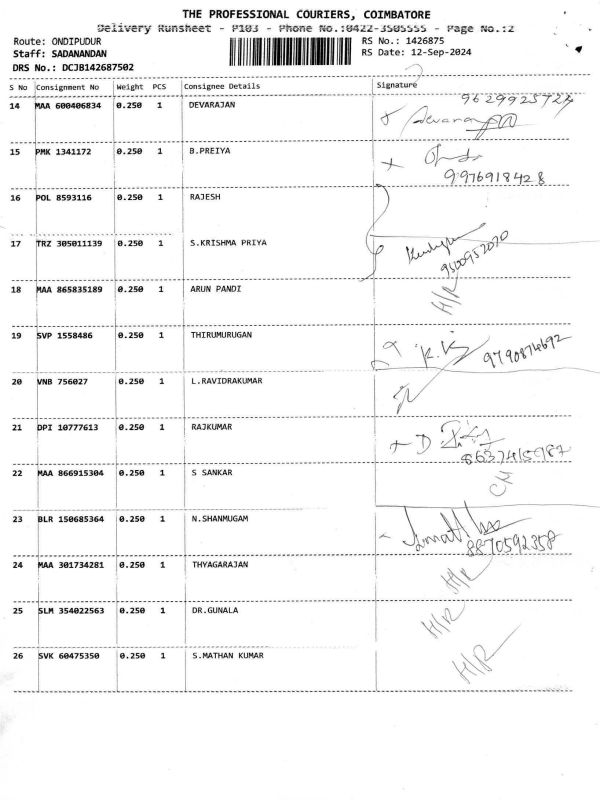 THE PROFESSIONAL COURIERS, COIMBATORE
Delivery Runsheet - P103 - Phone No.:0422-3505555 - Page No.:2
Route: ONDIPUDUR
RS No.: 1426875
Staff: SADANANDAN
RS Date: 12-Sep-2024
DRS No.: DCJB142687502
S No Consignment No Weight PCS Consignee Details Signature
14 MAA 600406834 0.250 1 DEVARAJAN
Devaraj
15 PMK 1341172 0.250 1 B.PREIYA
9976918428
16 POL 8593116 0.250 1 RAJESH
17 TRZ 305011139 0.250 1 S.KRISHMA PRIYA
9500952070
18 MAA 865835189 0.250 1 ARUN PANDI
H/R
19 SVP 1558486 0.250 1 THIRUMURUGAN
9790874692
20 VNB 756027 0.250 1 L.RAVIDRAKUMAR
21 DPI 10777613 0.250 1 RAJKUMAR
8637415987
22 MAA 866915304 0.250 1 S SANKAR
23 BLR 150685364 0.250 1 N.SHANMUGAM
8870592358
24 MAA 301734281 0.250 1 THYAGARAJAN
H/R
25 SLM 354022563 0.250 1 DR.GUNALA
H/R
26 SVK 60475350 0.250 1 S.MATHAN KUMAR
H/R